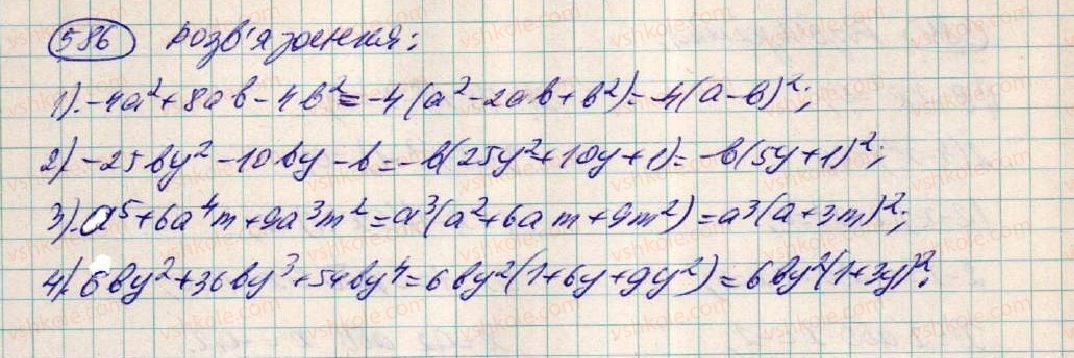 586 Розв'язання:
1). -4a² + 8ab - 4b² = -4(a² - 2ab + b²) = -4(a - b)²;
2). -25by² - 10by - b = -b(25y² + 10y + 1) = -b(5y + 1)²;
3). a⁵ + 6a⁴m + 9a³m² = a³(a² + 6am + 9m²) = a³(a + 3m)²;
4). 6by² + 36by³ + 54by⁴ = 6by²(1 + 6y + 9y²) = 6by²(1 + 3y)².